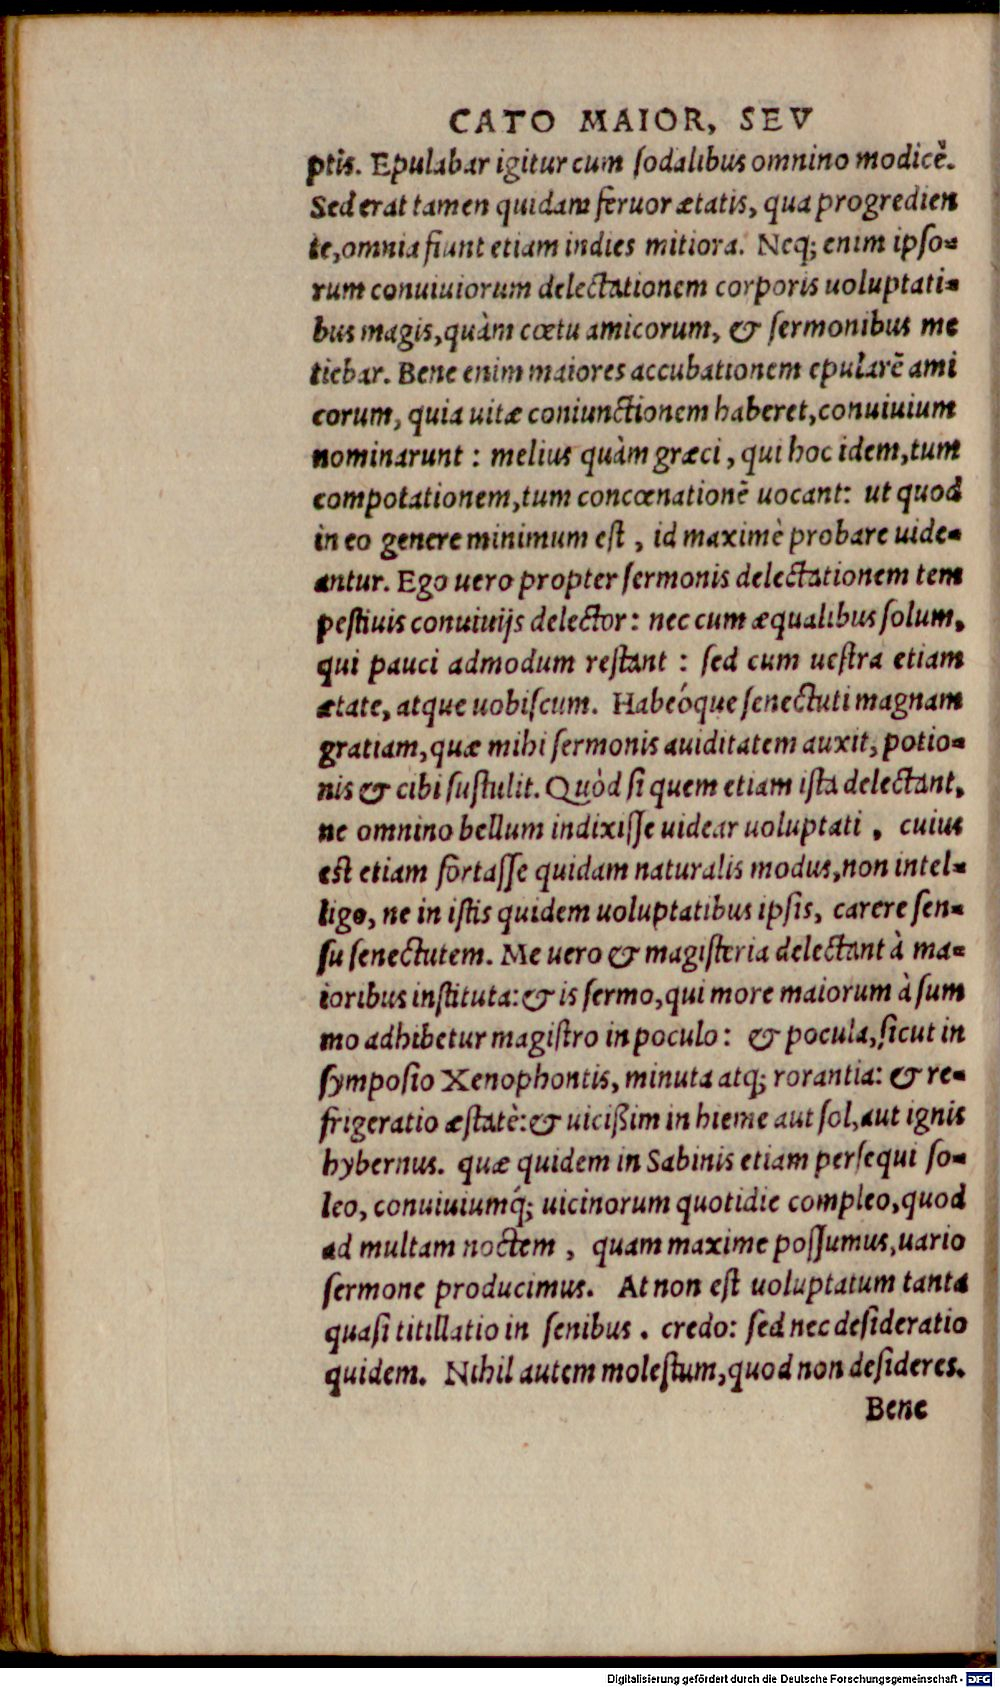 CATO MAIOR, SEV
ptis. Epulabar igitur cum sodalibus omnino modicè.
Sed erat tamen quidam feruor ætatis, qua progredien
te, omnia fiunt etiam indies mitiora. Neq; enim ipso-
rum conuiuiorum delectationem corporis uoluptati-
bus magis, quàm cœtu amicorum, & sermonibus me
tiebar. Bene enim maiores accubationem epularē ami
corum, quia uitæ coniunctionem haberet, conuiuium
nominarunt : melius quàm græci, qui hoc idem, tum
compotationem, tum concœnationē uocant: ut quod
in eo genere minimum est, id maximè probare uide-
antur. Ego uero propter sermonis delectationem tem
pestiuis conuiuijs delector: nec cum æqualibus solum,
qui pauci admodum restant : sed cum uestra etiam
ætate, atque uobiscum. Habeóque senectuti magnam
gratiam, quæ mihi sermonis auiditatem auxit, potio-
nis & cibi sustulit. Quòd si quem etiam ista delectant,
ne omnino bellum indixisse uidear uoluptati, cuius
est etiam fortasse quidam naturalis modus, non intel-
ligo, ne in istis quidem uoluptatibus ipsis, carere sen-
su senectutem. Me uero & magisteria delectant à ma-
ioribus instituta: & is sermo, qui more maiorum à sum
mo adhibetur magistro in poculo: & pocula, sicut in
symposio Xenophontis, minuta atq; rorantia: & re-
frigeratio æstatè: & uicißim in hieme aut sol, aut ignis
hybernus. quæ quidem in Sabinis etiam persequi so-
leo, conuiuiumq́; uicinorum quotidie compleo, quod
ad multam noctem, quam maxime possumus, uario
sermone producimus. At non est uoluptatum tanta
quasi titillatio in senibus. credo: sed nec desideratio
quidem. Nihil autem molestum, quod non desideres.
Bene
Digitalisierung gefördert durch die Deutsche Forschungsgemeinschaft - DFG